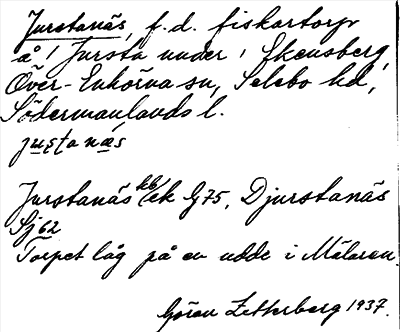 Jurstanäs, f.d. fiskartorp
å Jursta under Ekensberg,
Över-Enhörna sn, Selebo hd,
Södermanlands l.
juṣtanäs
Jurstanäs hb/ek G75, Djurstanäs
Sj62
Torpet låg på en udde i Mälaren.
Göran Zetterberg 1937.